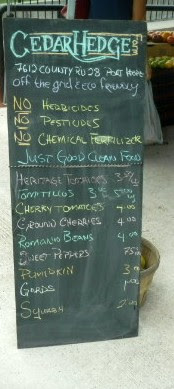 CEDARHEDGE FARM
7612 COUNTY RD 28 PORT HOPE
off the grid & ECO friendly
NO HERBICIDES
NO PESTICIDES
NO CHEMICAL FERTILIZER
JUST GOOD CLEAN FOOD
HERITAGE TOMATOES
TOMATILLOS
CHERRY TOMATOES 4.00
GROUND CHERRIES 4.00
ROMANO BEANS 4.00
SWEET PEPPERS
PUMPKIN 3.00
GORDS
SQUASH